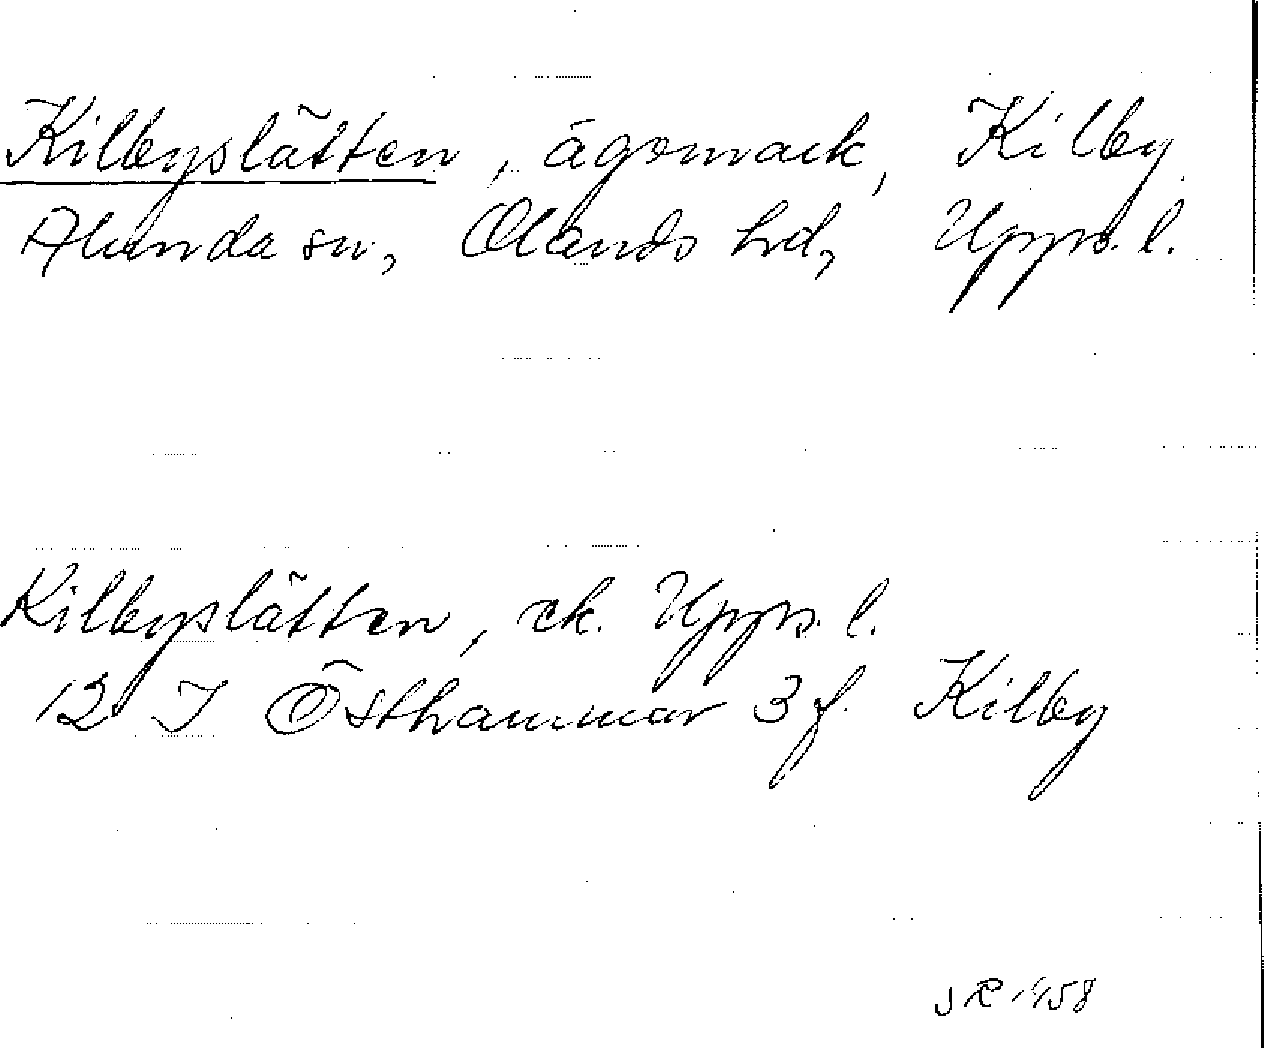 Kilbyslätten, ägomark, Kilby
Alunda sn, Olands hd, Upps. l.
Kilbyslätten, ek. Upps. l.
12 I Östhammar 3 f. Kilby
JR 1958